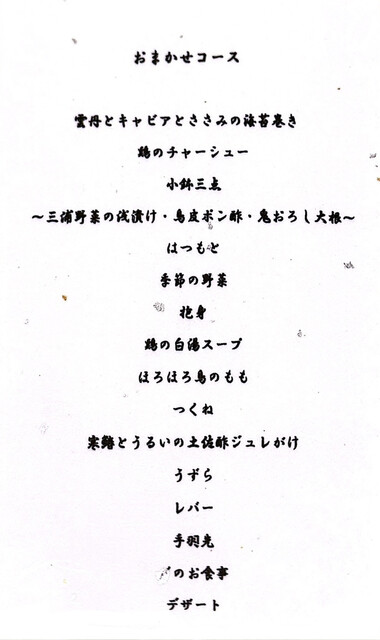 おまかせコース
雲丹とキャビアとささみの海苔巻き
鶏のチャーシュー
小鉢三点
～三浦野菜の浅漬け・鳥皮ポン酢・鬼おろし大根～
はつもと
季節の野菜
抱身
鶏の白湯スープ
ほろほろ鳥のもも
つくね
寒鰆とうるいの土佐酢ジュレがけ
うずら
レバー
手羽先
〆のお食事
デザート